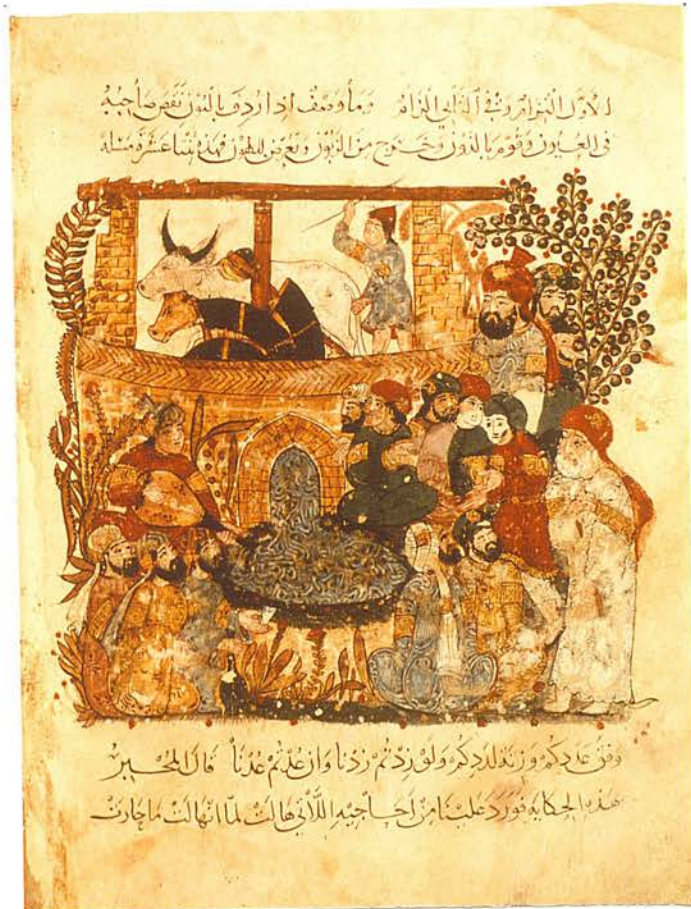 الأول التزامه وفي الثاني إلزامه وما وصف إذا أردف بالنون نقص صاحبه
في العيون وقوم بالدون وخرج من الزبون وتعرض للهون فهذه ثنتا عشرة مسئلة
وفق عددكم وزنة لددكم ولو زدتم زدنا وان عدتم عدنا قال المخبر
بهذه الحكاية فورد علينا من احاجيه اللاتي هالت لما انهالت ما حارت